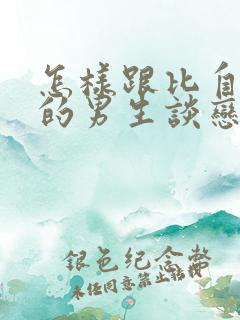 怎樣跟比自
的男生談戀
銀色纪念幣
未经同意禁止转载